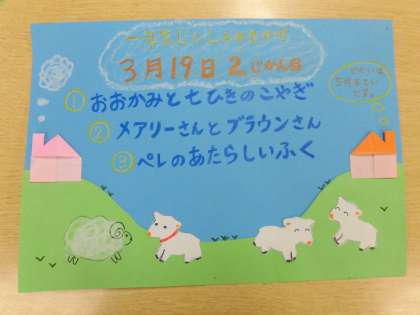 3月19日2じかん目
① おおかみと七ひきのこやぎ
② メアリーさんとブラウンさん
③ ペレのあたらしいふく
です。